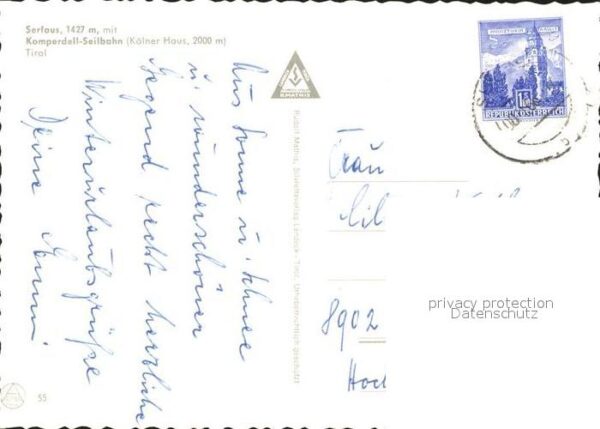 Serfaus, 1427 m, mit
Komperdell-Seilbahn (Kölner Haus, 2000 m)
Tirol
Aus Sonne u. Schnee
u. wunderschöner
Gegend recht herzliche
Winterurlaubsgrüße
Deine
Rudolf Mathis, Silvrettaverlag Landeck - Tirol. Urheberrechtlich geschützt
REPUBLIK ÖSTERREICH
Frau
8902
Hoc
privacy protection
Datenschutz
55